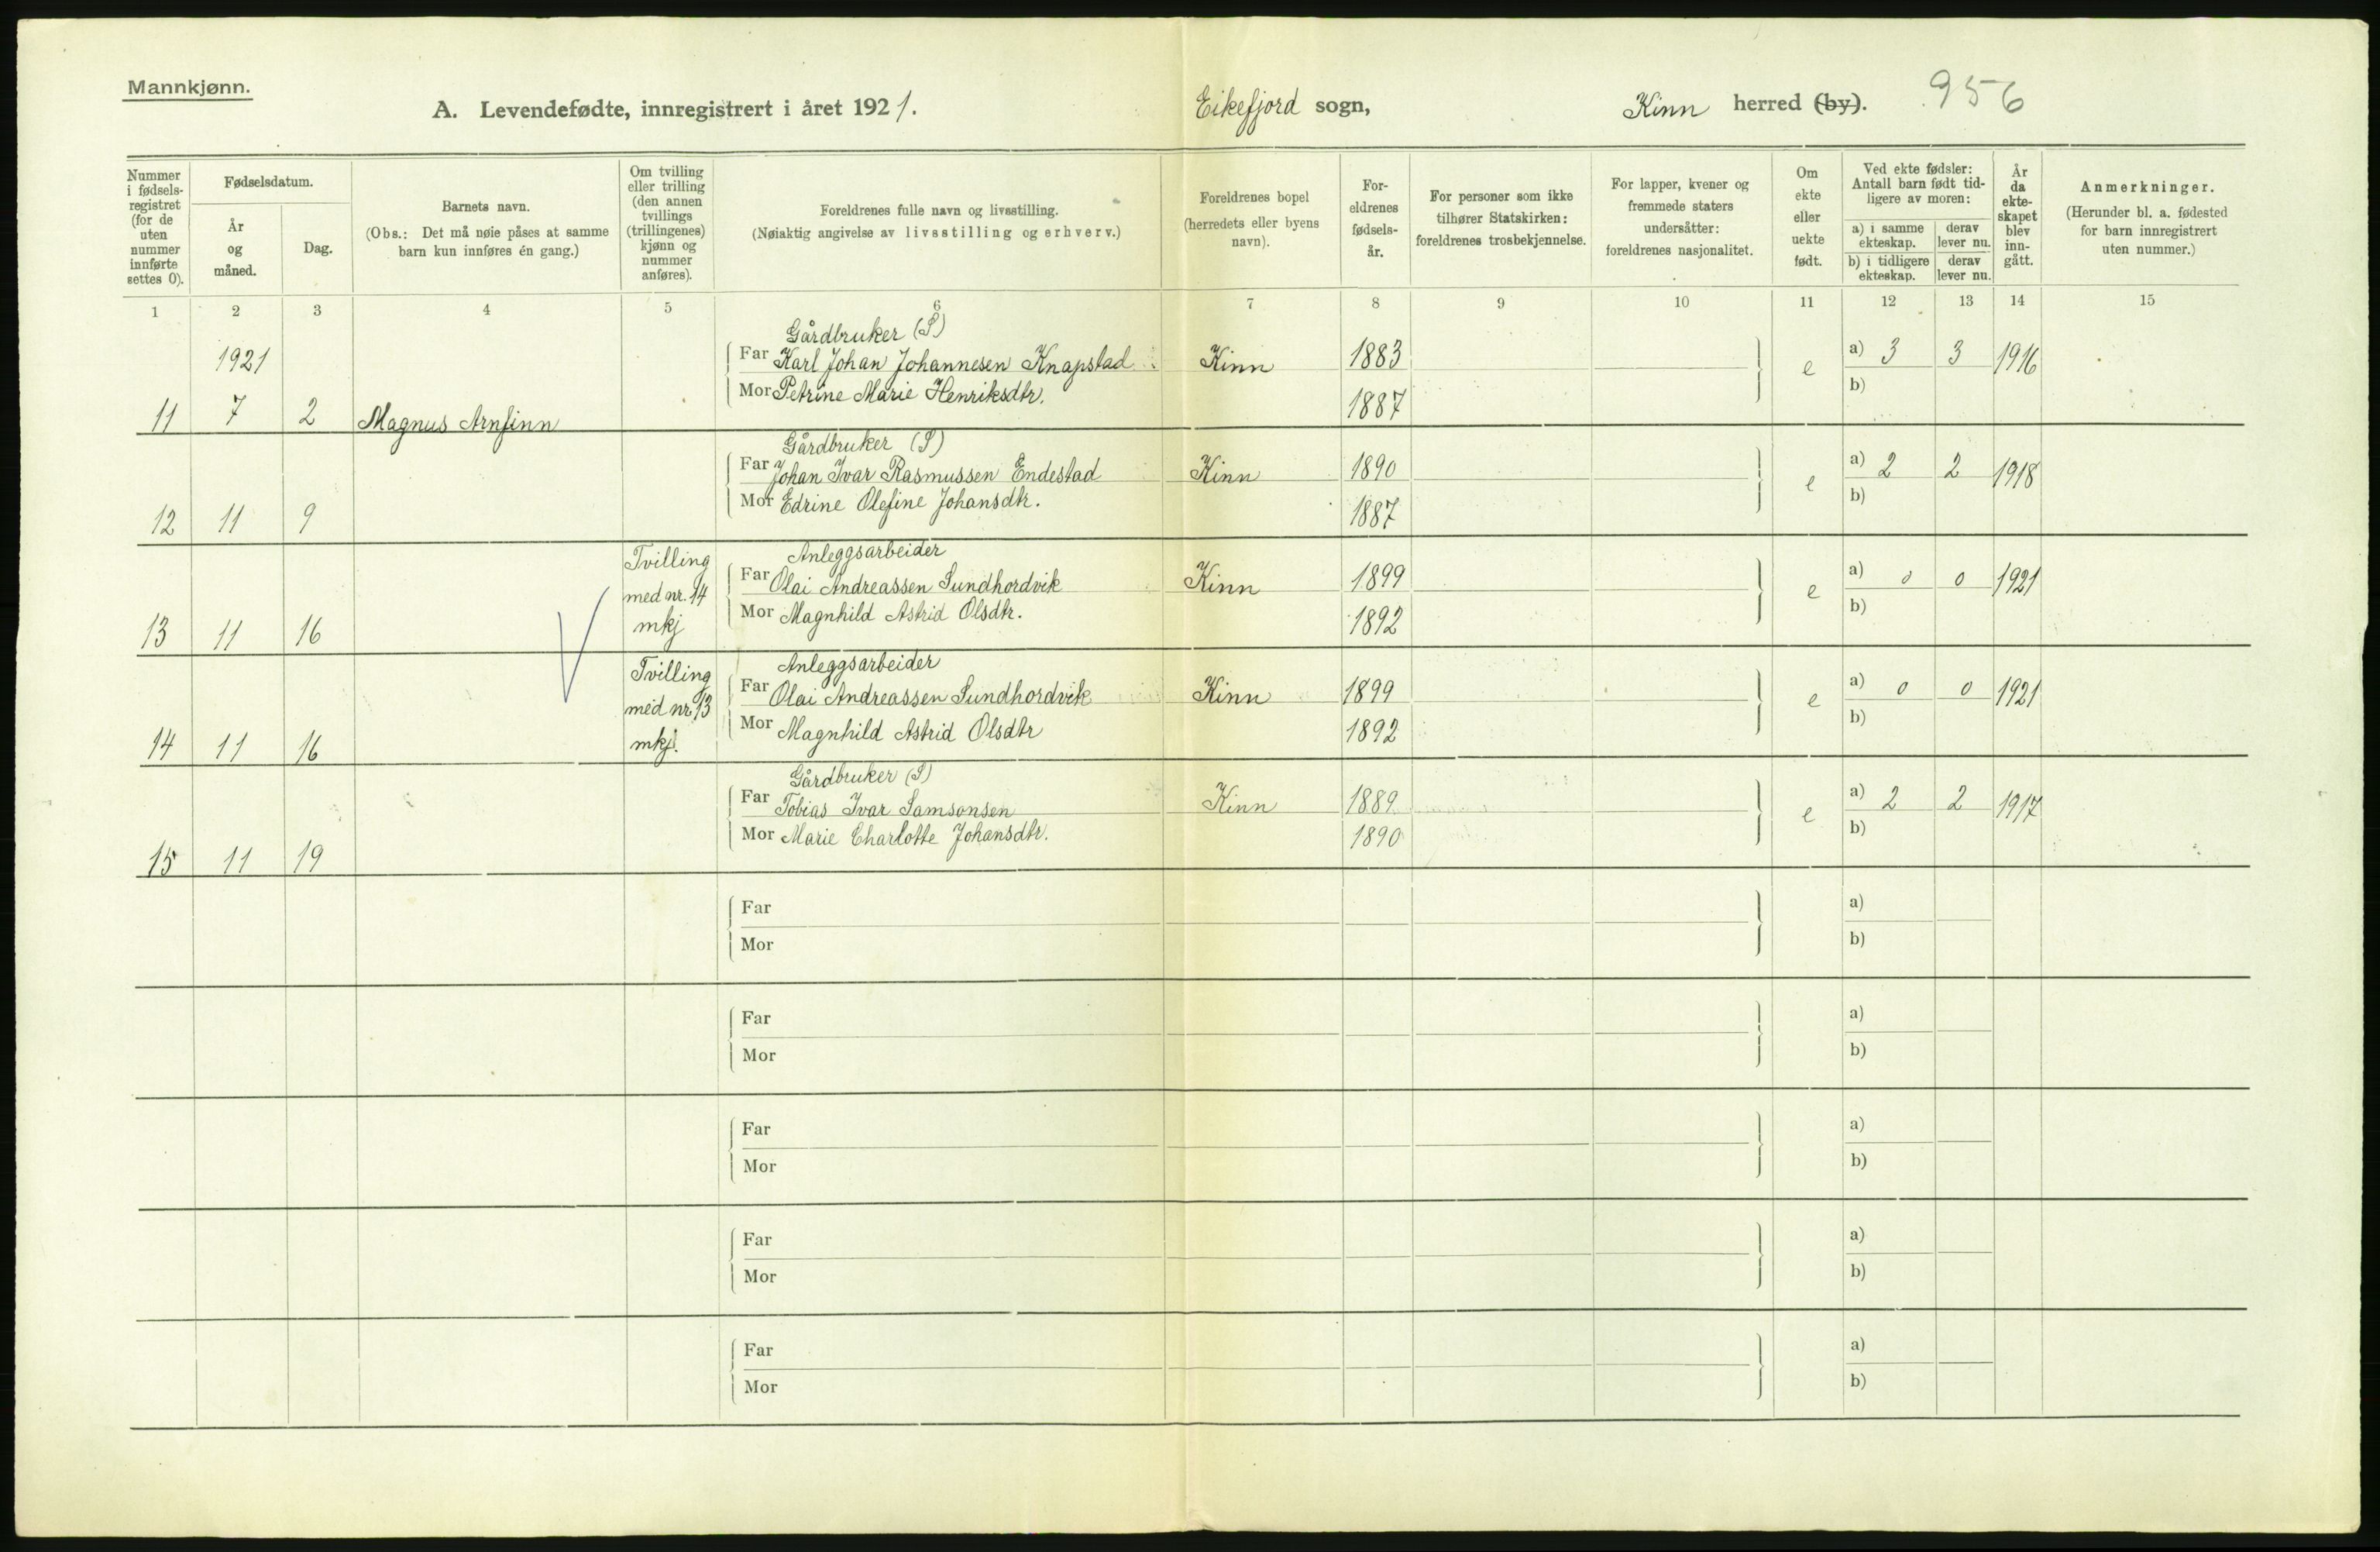 Mannkjønn.
A. Levendefødte, innregistrert i året 1921. Eikefjord sogn, Kinn herred (by). 956
Nummer i fødselsregistret (for de uten nummer innførte settes 0).
Fødselsdatum.
År og måned.
Dag.
Barnets navn.
(Obs.: Det må nøie påses at samme barn kun innføres én gang.)
Om tvilling eller trilling (den annen tvillings (trillingenes) kjønn og nummer anføres).
Foreldrenes fulle navn og livsstilling.
(Nøiaktig angivelse av livsstilling og erhverv.)
Foreldrenes bopel (herredets eller byens navn).
Foreldrenes fødselsår.
For personer som ikke tilhører Statskirken: foreldrenes trosbekjennelse.
For lapper, kvener og fremmede staters undersåtter: foreldrenes nasjonalitet.
Om ekte eller uekte født.
Ved ekte fødsler: Antall barn født tidligere av moren:
a) i samme ekteskap. derav lever nu.
b) i tidligere ekteskap. derav lever nu.
År da ekteskapet blev inngått.
Anmerkninger.
(Herunder bl. a. fødested for barn innregistrert uten nummer.)
1 2 3 4 5 6 7 8 9 10 11 12 13 14 15
Gårdbruker (S)
1921 Far Karl Johan Johannesen Knapstad Kinn 1883 e a) 3 3 1916
Mor Petrine Marie Henriksdtr. 1887 b)
11 7 2 Magnus Arnfinn
Gårdbruker (S)
Far Johan Ivar Rasmussen Endestad Kinn 1890 e a) 2 2 1918
Mor Edrine Olefine Johansdtr. 1887 b)
12 11 9
Tvilling Anleggsarbeider
med nr. 14 Far Olai Andreassen Sundhordvik Kinn 1899 e a) 0 0 1921
mkj Mor Magnhild Astrid Olsdtr. 1892 b)
13 11 16
Tvilling Anleggsarbeider
med nr 13 Far Olai Andreassen Sundhordvik Kinn 1899 e a) 0 0 1921
mkj. Mor Magnhild Astrid Olsdtr 1892 b)
14 11 16
Gårdbruker (S)
Far Tobias Ivar Samsonsen Kinn 1889 e a) 2 2 1917
Mor Marie Charlotte Johansdtr. 1890 b)
15 11 19
Far a)
Mor b)
Far a)
Mor b)
Far a)
Mor b)
Far a)
Mor b)
Far a)
Mor b)